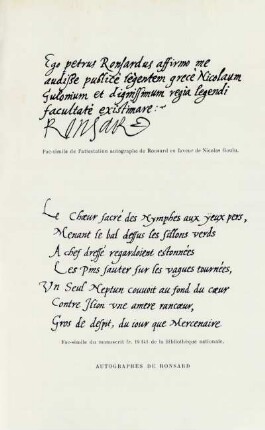 Ego petrus Ronsardus affirmo me
audisse publice legentem grece Nicolaum
Gulonium et dignissimum regia legendi
facultate existimare :
RONSARD
Fac-similé de l'attestation autographe de Ronsard en faveur de Nicolas Goulu.
Le Chœur sacré des Nymphes aux yeux pers,
Menant le bal dessus les sillons verds
A chef dressé regardoient estonnées
Les Pins sauter sur les vagues tournées,
Un Seul Neptun couvoit au fond du cœur
Contre Ilion une amere rancœur,
Gros de despit, du iour que Mercenaire
Fac-similé du manuscrit fr. de la Bibliothèque nationale.
AUTOGRAPHES DE RONSARD